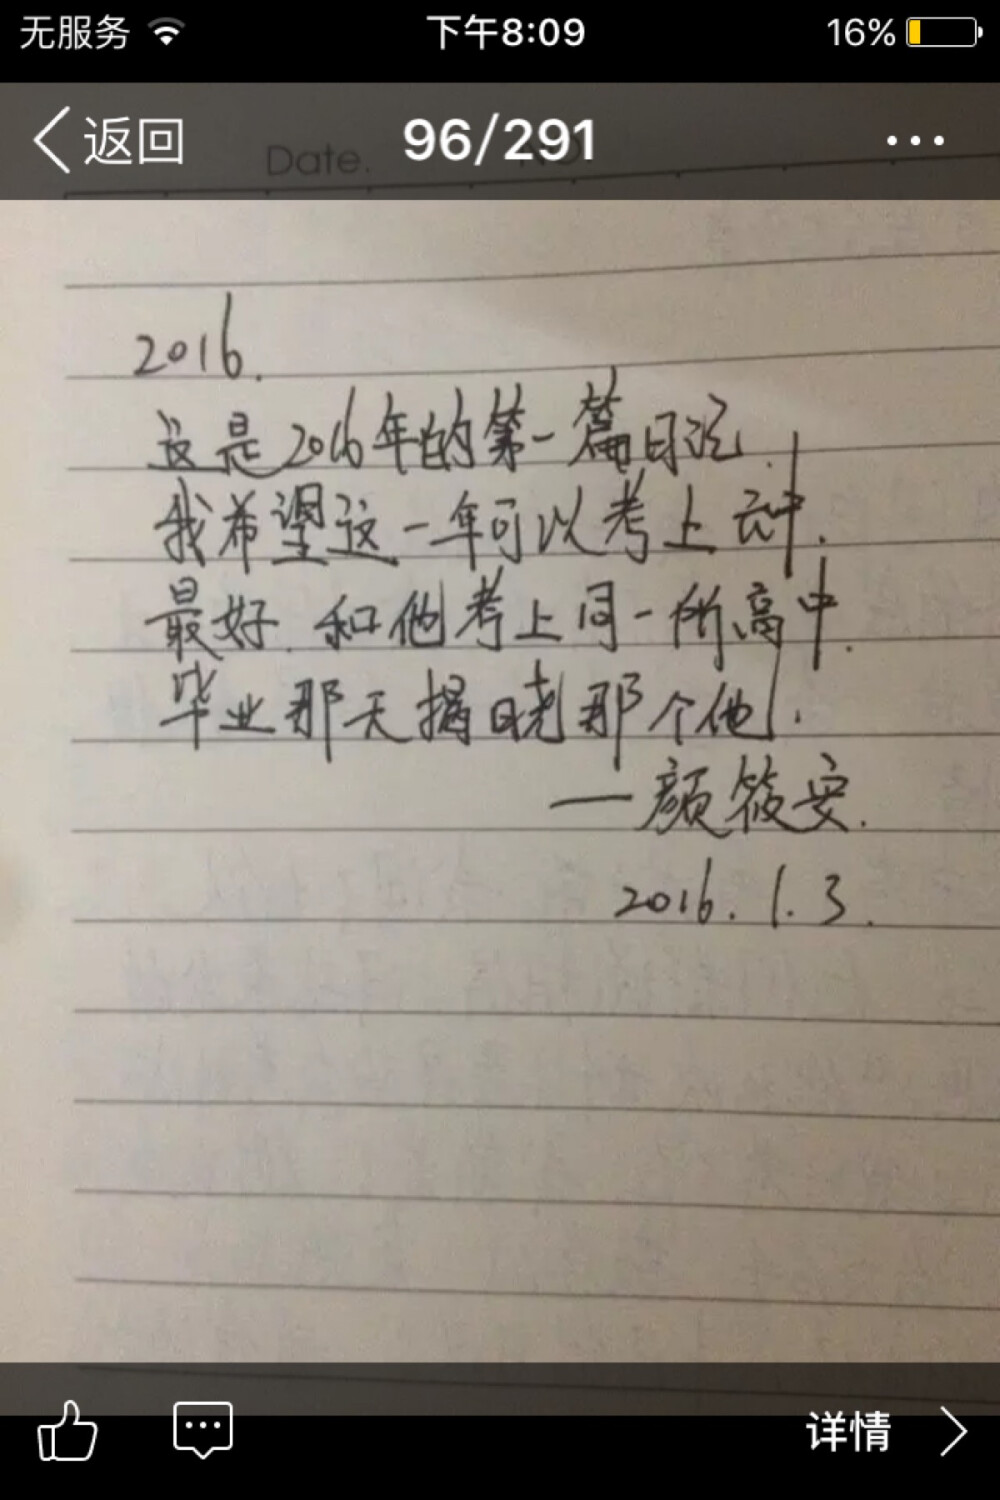 无服务 下午8:09 16%
返回 96/291 ...
Date.
2016.
这是2016年的第一篇日记.
我希望这一年可以考上云中.
最好.和他考上同一所高中.
毕业那天揭晓那个他.
—颜筱安.
2016.1.3.
详情